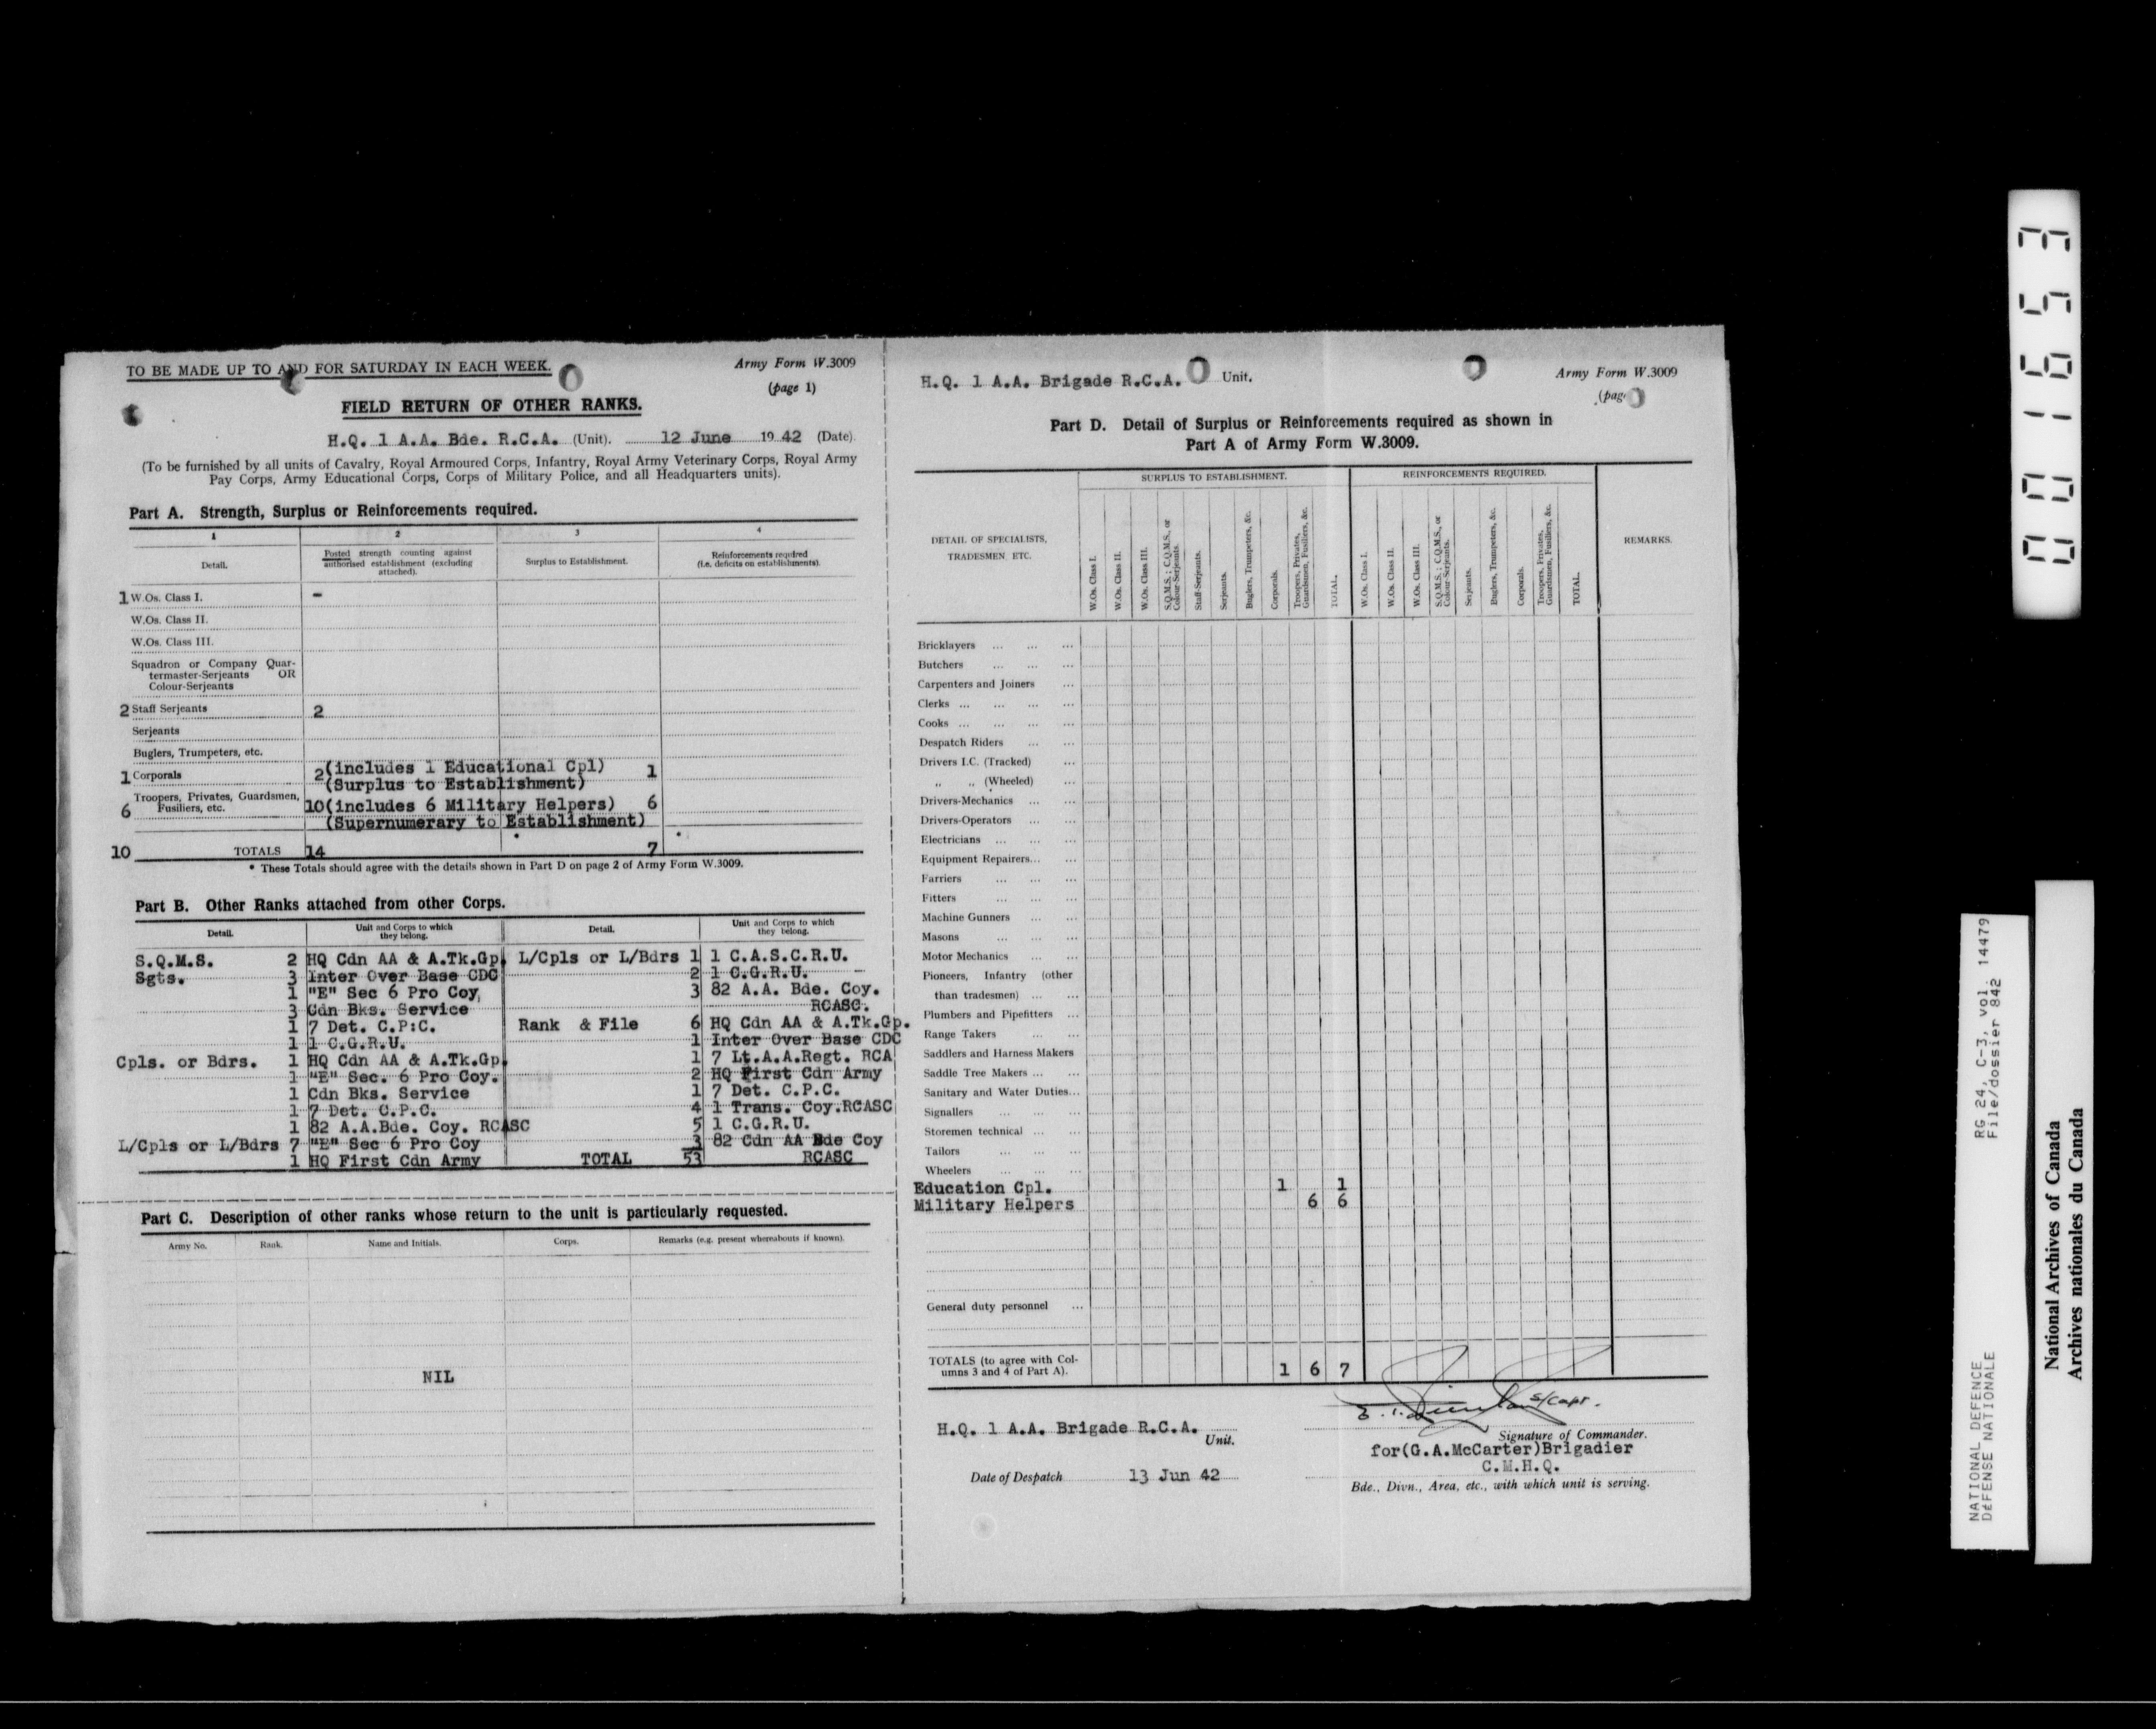 TO BE MADE UP TO AND FOR SATURDAY IN EACH WEEK.
Army Form W.3009
(page 1)
FIELD RETURN OF OTHER RANKS.
H.Q. 1 A.A. Bde. R.C.A. (Unit). 12 June 19 42 (Date).
(To be furnished by all units of Cavalry, Royal Armoured Corps, Infantry, Royal Army Veterinary Corps, Royal Army
Pay Corps, Army Educational Corps, Corps of Military Police, and all Headquarters units).
Part A. Strength, Surplus or Reinforcements required.
1 2 3 4
Detail.
Posted strength counting against
authorised establishment (excluding
attached).
Surplus to Establishment.
Reinforcements required
(i.e. deficits on establishments).
1 W.Os. Class I. -
W.Os. Class II.
W.Os. Class III.
Squadron or Company Quar-
termaster-Serjeants OR
Colour-Serjeants
2 Staff Serjeants 2
Serjeants
Buglers, Trumpeters, etc.
1 Corporals 2 (includes 1 Educational Cpl) 1
(Surplus to Establishment)
6 Troopers, Privates, Guardsmen,
Fusiliers, etc. 10 (includes 6 Military Helpers) 6
(Supernumerary to Establishment)
10 TOTALS 14 7
* These Totals should agree with the details shown in Part D on page 2 of Army Form W.3009.
Part B. Other Ranks attached from other Corps.
Detail. Unit and Corps to which
they belong. Detail. Unit and Corps to which
they belong.
S.Q.M.S. 2 HQ Cdn AA & A.Tk.Gp. L/Cpls or L/Bdrs 1 1 C.A.S.C.R.U.
Sgts. 3 Inter Over Base CDC 2 1 C.G.R.U.
1 "E" Sec 6 Pro Coy 3 82 A.A. Bde. Coy.
3 Cdn Bks. Service RCASC.
1 7 Det. C.P.C. Rank & File 6 HQ Cdn AA & A.Tk.Gp.
1 1 C.G.R.U. 1 Inter Over Base CDC
Cpls. or Bdrs. 1 HQ Cdn AA & A.Tk.Gp. 1 7 Lt.A.A.Regt. RCA
1 "E" Sec. 6 Pro Coy. 2 HQ First Cdn Army
1 Cdn Bks. Service 1 7 Det. C.P.C.
1 7 Det. C.P.C. 4 1 Trans. Coy.RCASC
1 82 A.A.Bde. Coy. RCASC 5 1 C.G.R.U.
L/Cpls or L/Bdrs 7 "E" Sec 6 Pro Coy 3 82 Cdn AA Bde Coy
1 HQ First Cdn Army TOTAL 53 RCASC
Part C. Description of other ranks whose return to the unit is particularly requested.
Army No. Rank. Name and Initials. Corps. Remarks (e.g. present whereabouts if known).
NIL
H.Q. 1 A.A. Brigade R.C.A. Unit.
Army Form W.3009
(page
Part D. Detail of Surplus or Reinforcements required as shown in
Part A of Army Form W.3009.
DETAIL OF SPECIALISTS,
TRADESMEN ETC.
SURPLUS TO ESTABLISHMENT.
W.Os. Class I.
W.Os. Class II.
W.Os. Class III.
S.Q.M.S.; C.Q.M.S., or
Colour-Serjeants.
Staff-Serjeants.
Serjeants.
Buglers, Trumpeters, &c.
Corporals.
Troopers, Privates,
Guardsmen, Fusiliers, &c.
TOTAL.
REINFORCEMENTS REQUIRED.
W.Os. Class I.
W.Os. Class II.
W.Os. Class III.
S.Q.M.S.; C.Q.M.S., or
Colour-Serjeants.
Serjeants.
Buglers, Trumpeters, &c.
Corporals.
Troopers, Privates,
Guardsmen, Fusiliers, &c.
TOTAL.
REMARKS.
Bricklayers ... ... ...
Butchers ... ... ...
Carpenters and Joiners ...
Clerks ... ... ... ...
Cooks ... ... ... ...
Despatch Riders ... ...
Drivers I.C. (Tracked) ...
" " (Wheeled) ...
Drivers-Mechanics ... ...
Drivers-Operators ... ...
Electricians ... ... ...
Equipment Repairers... ...
Farriers ... ... ...
Fitters ... ... ...
Machine Gunners ... ...
Masons ... ... ...
Motor Mechanics ... ...
Pioneers, Infantry (other
than tradesmen) ... ...
Plumbers and Pipefitters ...
Range Takers ... ...
Saddlers and Harness Makers
Saddle Tree Makers ... ...
Sanitary and Water Duties...
Signallers ... ... ...
Storemen technical ... ...
Tailors ... ... ...
Wheelers ... ... ...
Education Cpl. 1 1
Military Helpers 6 6
General duty personnel ...
TOTALS (to agree with Col-
umns 3 and 4 of Part A). 1 6 7
S/Capt.
H.Q. 1 A.A. Brigade R.C.A.
Unit.
Signature of Commander.
for(G.A.McCarter)Brigadier
C.M.H.Q.
Date of Despatch 13 Jun 42
Bde., Divn., Area, etc., with which unit is serving.
001653
RG 24, C-3, vol. 14479
File/dossier 842
NATIONAL DEFENCE
DÉFENSE NATIONALE
National Archives of Canada
Archives nationales du Canada